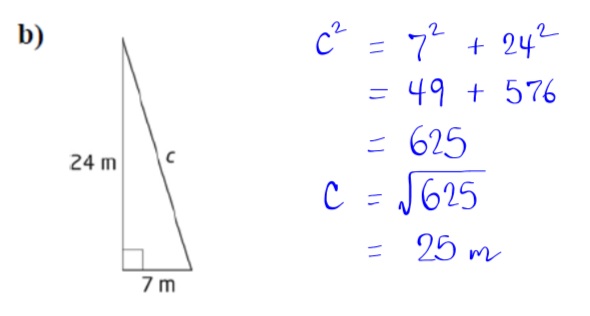 b)
24 m
c
7 m
c² = 7² + 24²
= 49 + 576
= 625
c = √625
= 25 m